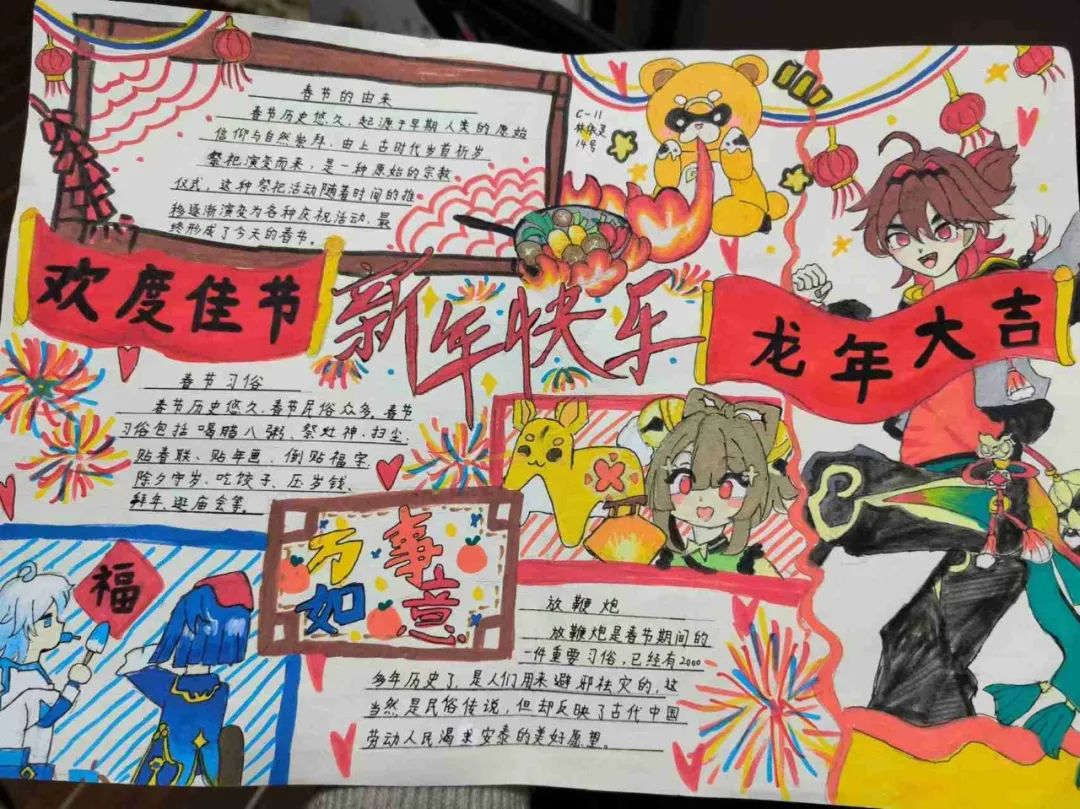 春节的由来
春节历史悠久，起源于早期人类的原始
信仰与自然崇拜，由上古时代岁首祈岁
祭祀演变而来，是一种原始的宗教
仪式，这种祭祀活动随着时间的推
移逐渐演变为各种庆祝活动，最
终形成了今天的春节。
C-11
14号
欢度佳节
新年快乐
龙年大吉
春节习俗
春节历史悠久、春节民俗众多，春节
习俗包括喝腊八粥、祭灶神、扫尘、
贴春联、贴年画、倒贴福字、
除夕守岁、吃饺子、压岁钱、
拜年、逛庙会等。
福
万事
如意
放鞭炮
放鞭炮是春节期间的
一件重要习俗，已经有2000
多年历史了，是人们用来避邪祛灾的，这
当然是民俗传说，但却反映了古代中国
劳动人民渴求安泰的美好愿望。